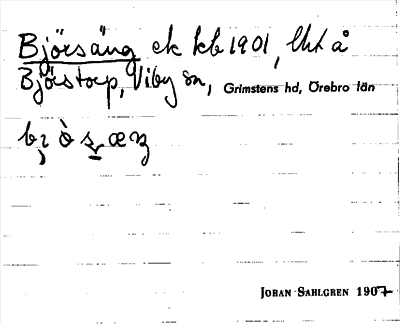 Björsäng ek kb 1901, lht å
Björstorp, Viby sn, Grimstens hd, Örebro län
JOHAN SAHLGREN 1907